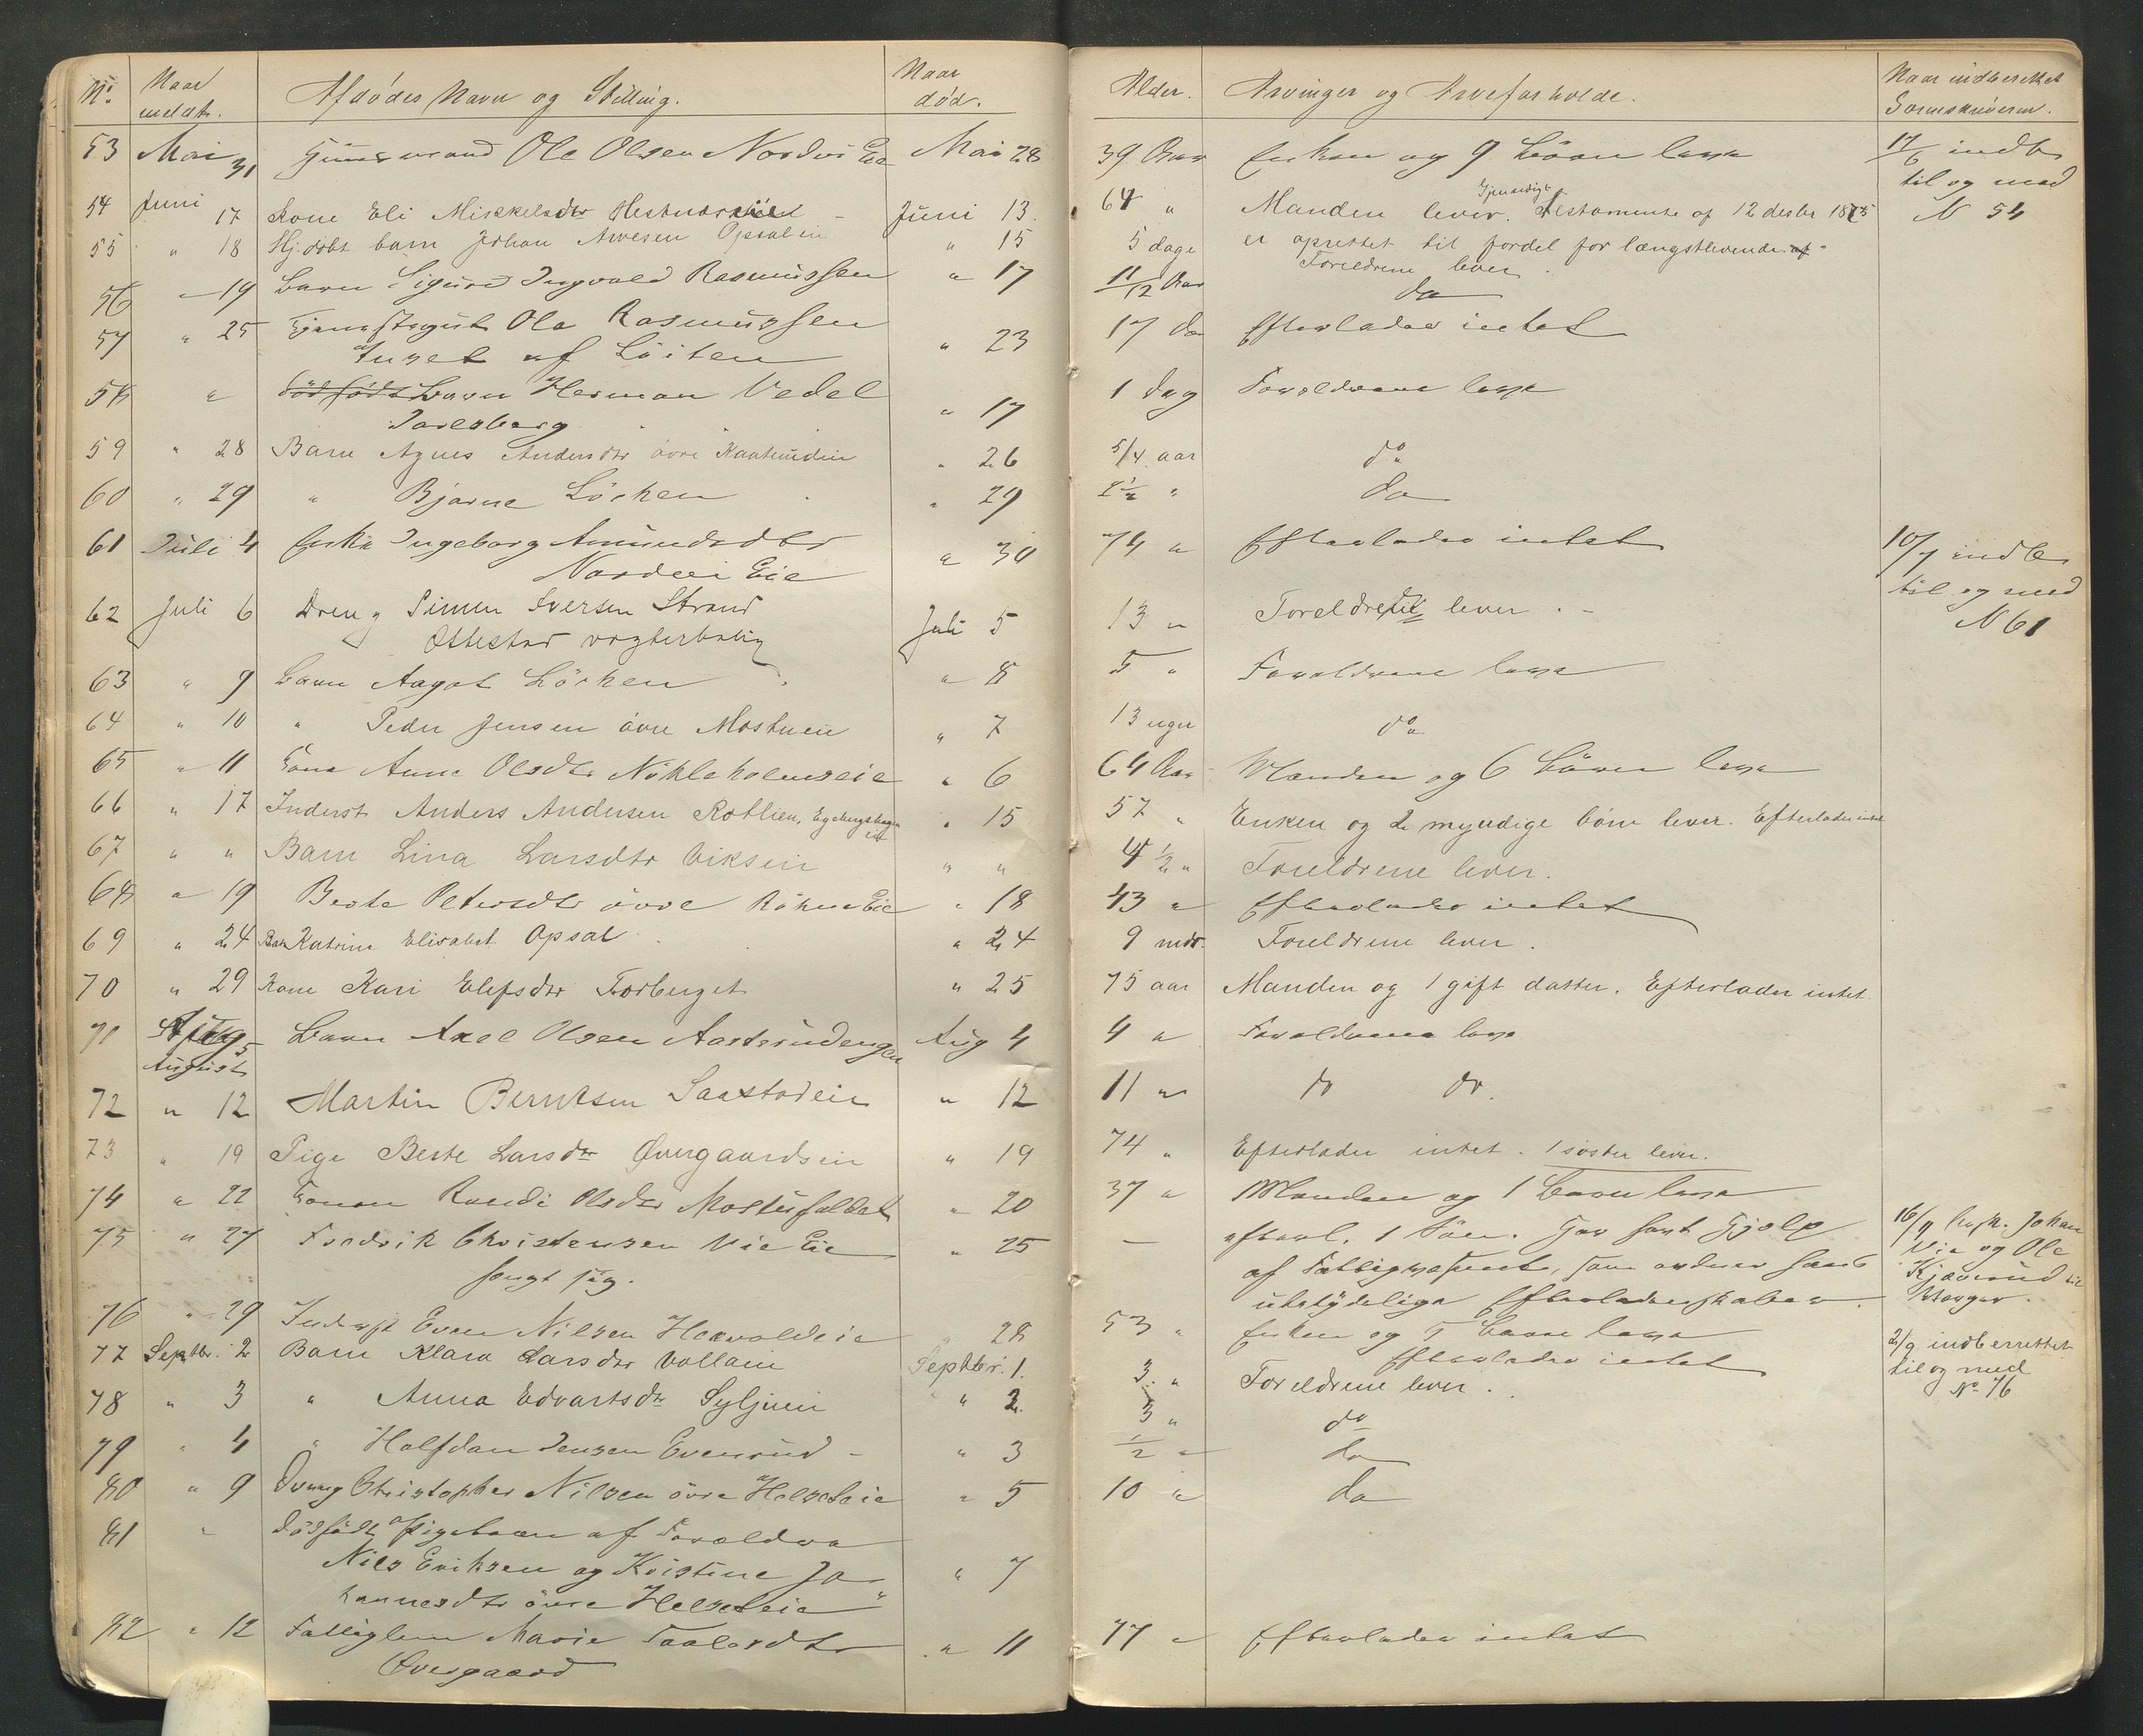 No. Naar meldt. Afdödes Navn og Stilling. Naar död. Alder. Arvinger og Arveforholde. Naar indberettet Sorenskriveren.
53 Mai 31 Huusmand Ole Olsen Nordvi Eie Mai 28 39 Aar Enken og 9 Börn leve 17/6 indb
til og med
54 Juni 17 Kone Eli Mikkelsdtr Juni 13. 64 " Manden lever. Gjensidigt Testamente af 12 desbr 1875 N 54
55 " 18 Hj.döbt barn Johan Arnesen Opsalein " 15 5 dage er oprettet til fordel for længstlevende.
Foreldrene lever.
56 " 19 Barn Sigurd Ingvald Rasmussen " 17 11/12 Aar do
57 " 25 Tjenestegut Ole Rasmussen
af Löiten " 23 17 do Efterlader intet
58 " Dödfödt Barn Herman Vedel
Jarlsberg " 17 1 dag Forældrene leve
59 " 28 Barn Agnes Andersdtr övre " 26 5/4 aar do
60 " 29 " Bjarne Löcken " 29 2½ " do
61 Juli 4 Enke Ingeborg Amundsdtr
Nordvi Eie " 30 74 " Efterlader intet 10/7 indb
til og med
N 61
62 Juli 6 Dreng Simen Iversen Strand
Ottestad vogterbolig Juli 5 13 " Foreldrene lever. -
63 " 9 Barn Aagot Löcken " 8 5 " Forældrene leve
64 " 10 " Peder Jensen övre Mostuen " 7 13 uger do
65 " 11 Kone Anne Olsdtr Nökleholmseie " 6 64 Aar Manden og 6 Börn leve
66 " 17 Inderst Anders Andersen " 15 57 " Enken og 2 myndige börn lever. Efterlader intet
67 " " Barn Lina Larsdtr Viksein " " 4½ " Foreldrene lever.
68 " 19 Berte Petersdtr övre Eie " 18 43 " Efterlader intet
69 " 24 Barn Katrine Elisabet Opsal " 24 9 mdr. Foreldrene lever.
70 " 29 Kone Kari Elefsdtr Torberget " 25 75 aar Manden og 1 gift datter. Efterlader intet.
71 August 5 Barn Axel Olsen Aastesudengen Aug 4 4 " Forældrene leve
72 " 12 Martin Berntsen Saastadeie " 12 11 " do do.
73 " 19 Pige Berte Larsdtr Övergaardsein " 19 74 " Efterlader intet. 1 söster lever.
74 " 22 Konen Randi Olsdtr " 20 37 " Manden og 1 Barn leve
75 " 27 Fredrik Christensen Vie Eie
hengt sig. " 25 — efterl. 1 Sön. Har havt Hjælp
af Fattigvæsenet, som ordner hans
ubetydelige Efterladenskaber. 16/9 Johan
Vie og Ole
Kjærrud til
Værger.
76 " 29 Inderst Even Nilsen " 28 53 " Enken og 5 Börn leve
Efterlader intet 2/9 indberettet
til og med
No 76
77 Septbr. 2 Barn Klara Larsdtr Vollein Septbr. 1. 3. " Foreldrene lever.
78 " 3 " Anna Edvartsdtr Syljuei " 2. 3 " do
79 " 4 " Halfdan Jensen Evensrud - " 3 ½ " do
80 " 9 Dreng Christopher Nilsen övre Helseteie " 5 10 " do
81 " Dödfödt Pigebarn af Forældre
Nils Eriksen og Kristine Jo-
hannesdtr övre Helseteie " 7
82 " 12 Fattiglem Marie
Övergaard " 11 77 " Efterlader intet